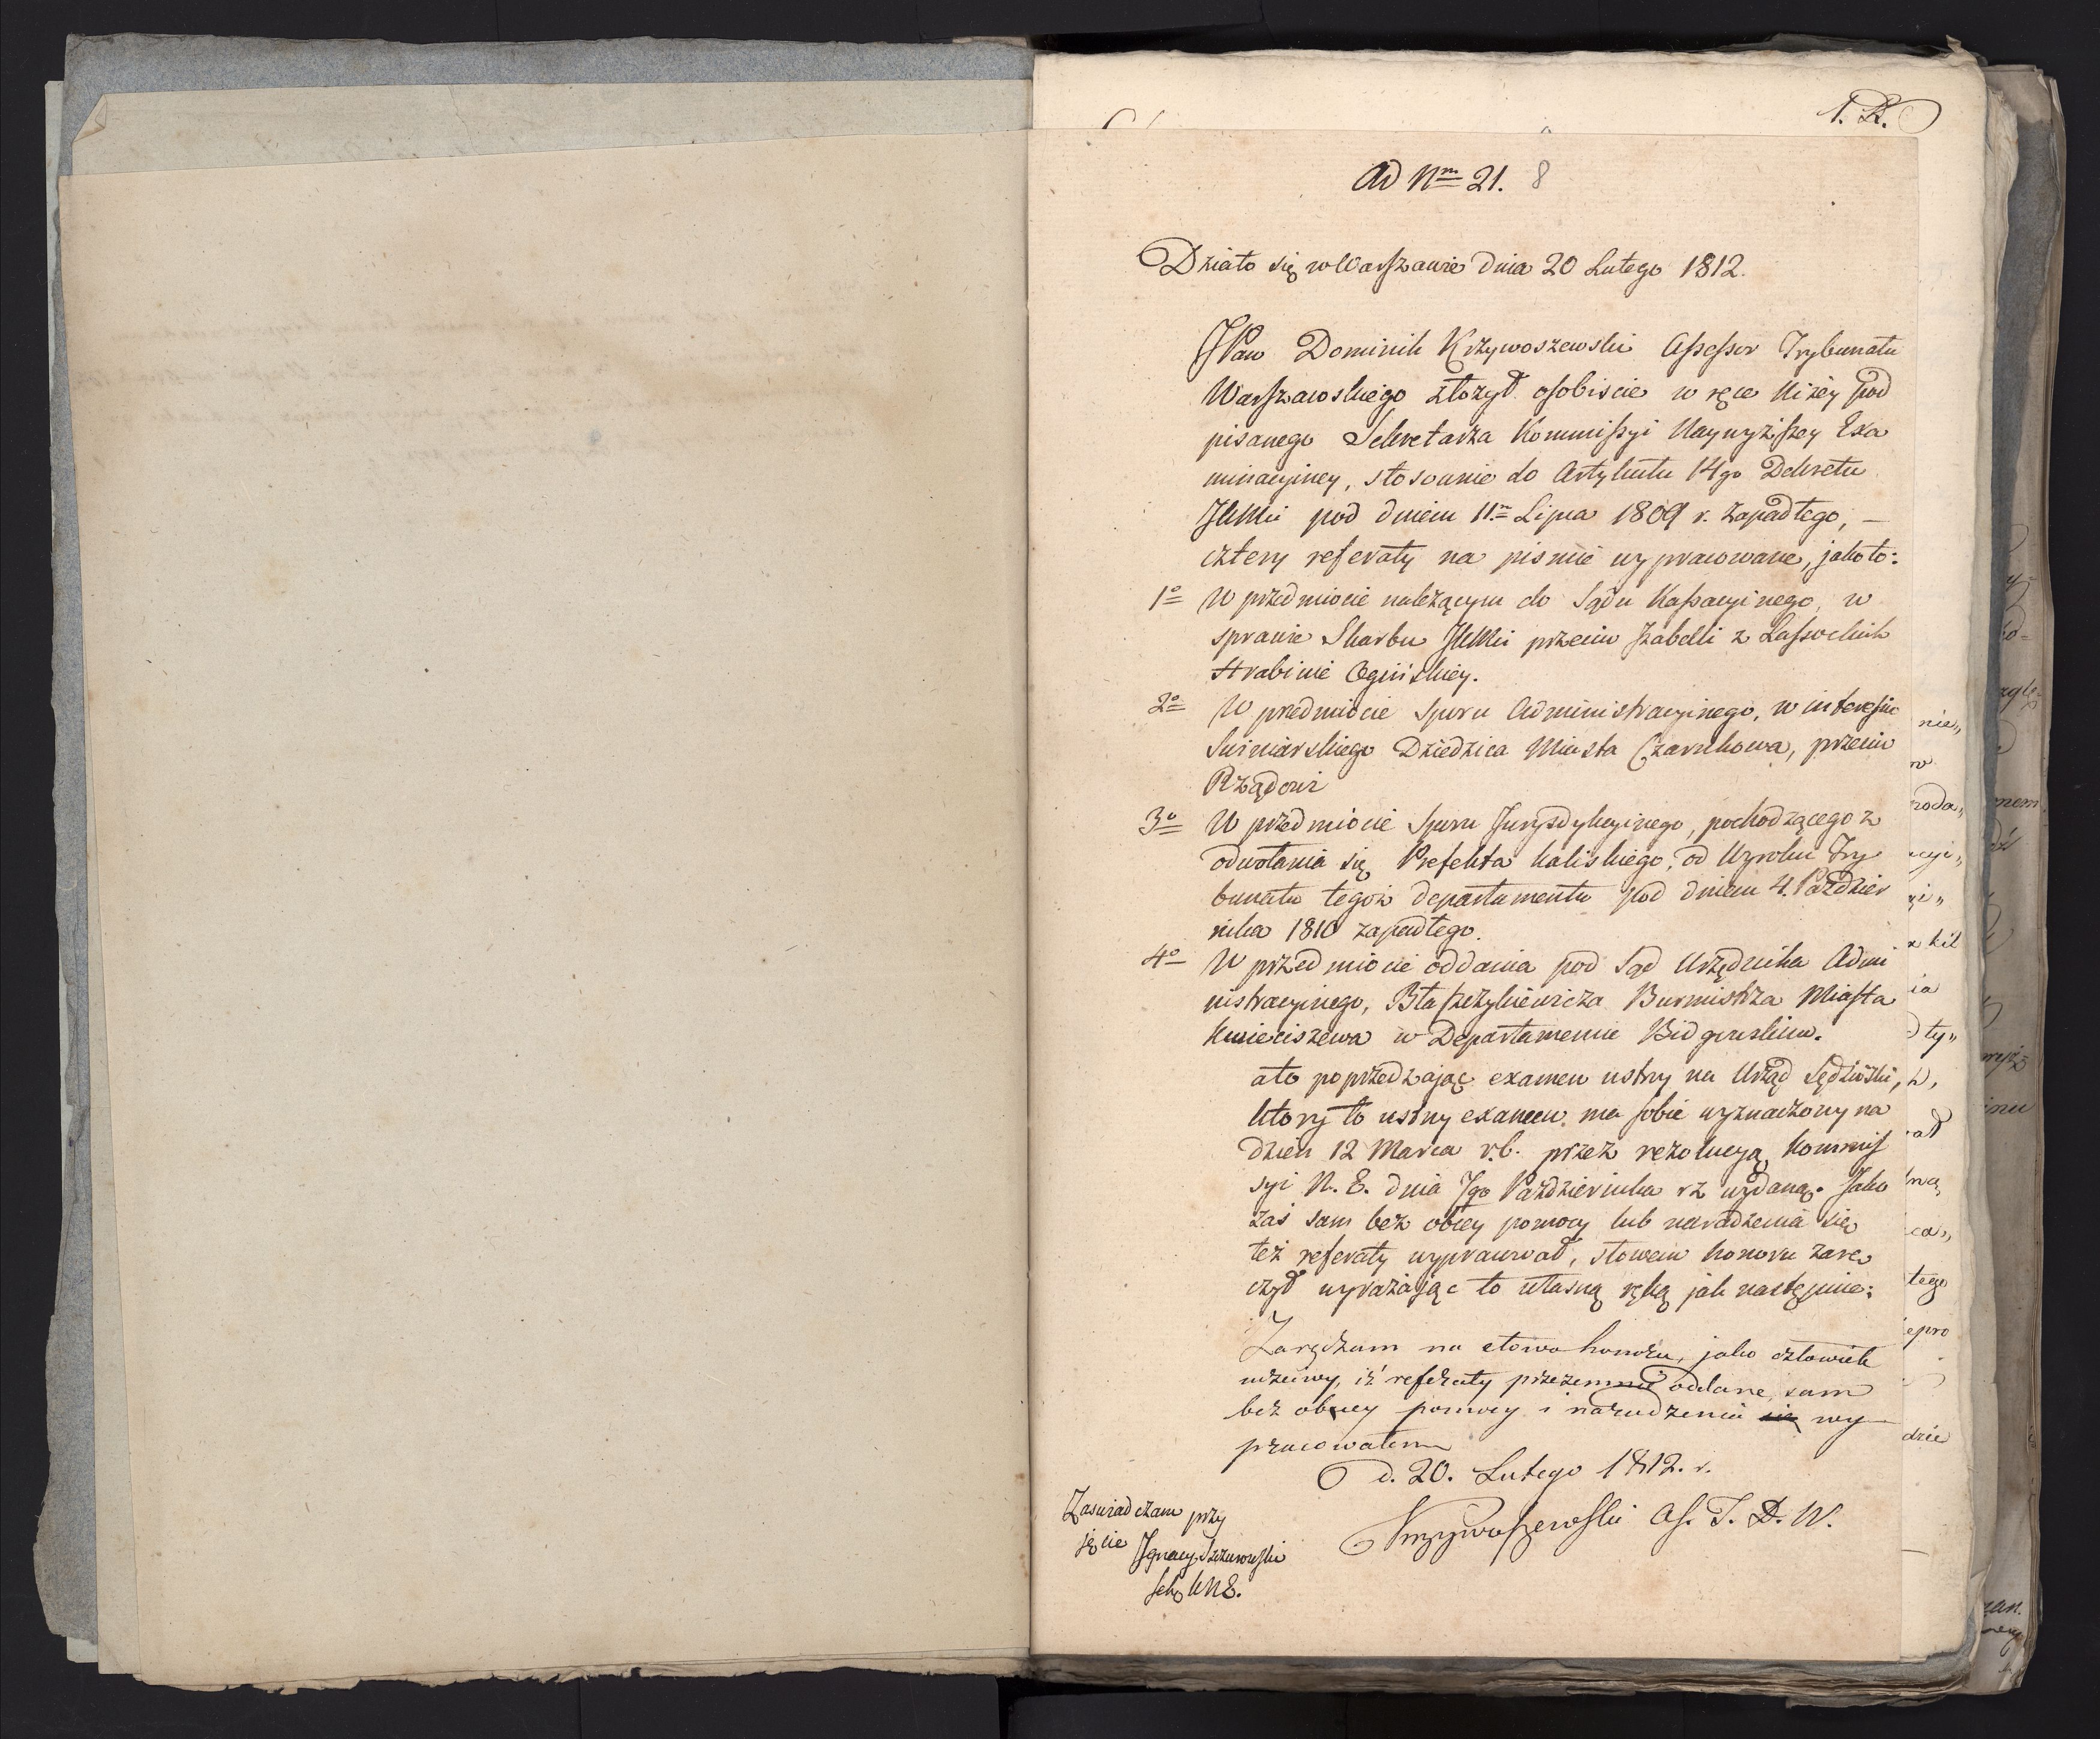 1. R.
Ad Nm 21. 8
Działo się w Warszawie dnia 20 Lutego 1812.
JPan Dominik Krzywoszewski Assessor Trybunału
Warszawskiego złożył osobiscie w ręce Niżéy pod
pisanego Sekretarza Kommissyi Naywyższey Exa
minacyiney, stosownie do Artykułu 14go Dekretu
JKMci pod dniem 11m Lipca 1809 r. zapadłego, –
cztery referaty na pismie wypracowane, jakoto:
1o W przedmiocie należącym do Sądu Kassacyinego, w
sprawie Skarbu JKMci przeciw Izabelli z Lassockich
Hrabinie Ogińskiey.
2o W przedmiocie sporu Administracyinego, w interessie
Swiniarskiego Dziedzica Miasta Czarnkowa, przeciw
Rządowi
3o W przedmiocie Sporu Jurysdykcyinego, pochodzącego z
odwołania się Prefekta Kaliskiego, od Wyroku Try
bunału tegoż departamentu pod dniem 4. Paździer
nika 1810 zapadłego.
4o W przedmiocie oddania pod Sąd Urzędnika Admi
nistracyinego, Burmistrza Miasta
Kwieciszewa w Departamencie Bidgoskim.
a to poprzedzając examen ustny na Urząd Sędziowski,
ktory to ustny examen ma sobie wyznaczony na
dzień 12 Marca r.b. przez rezolucyą Kommis
syi N. E. dnia 7go Października rz wydaną. Jako
zaś sam bez obcey pomocy lub naradzenia się
też referaty wypracował, słowem honoru zarę
czył wyrażając to własną ręką jak następuie:
Zaręczam na słowo honoru, jako człowiek
uczciwy, iż referaty przezemnie oddane, sam
bez obcey pomocy i naradzenia się wy
pracowałem
d. 20. Lutego 1812. r.
Krzywoszewski As. T. D. W.
Zaswiadczam przy
jęcie Ignacy
Sek KNE.
nie„
w
roda„
acyi„
x kil
ia
d ty„
ną
ca„
tego
epro
dzie